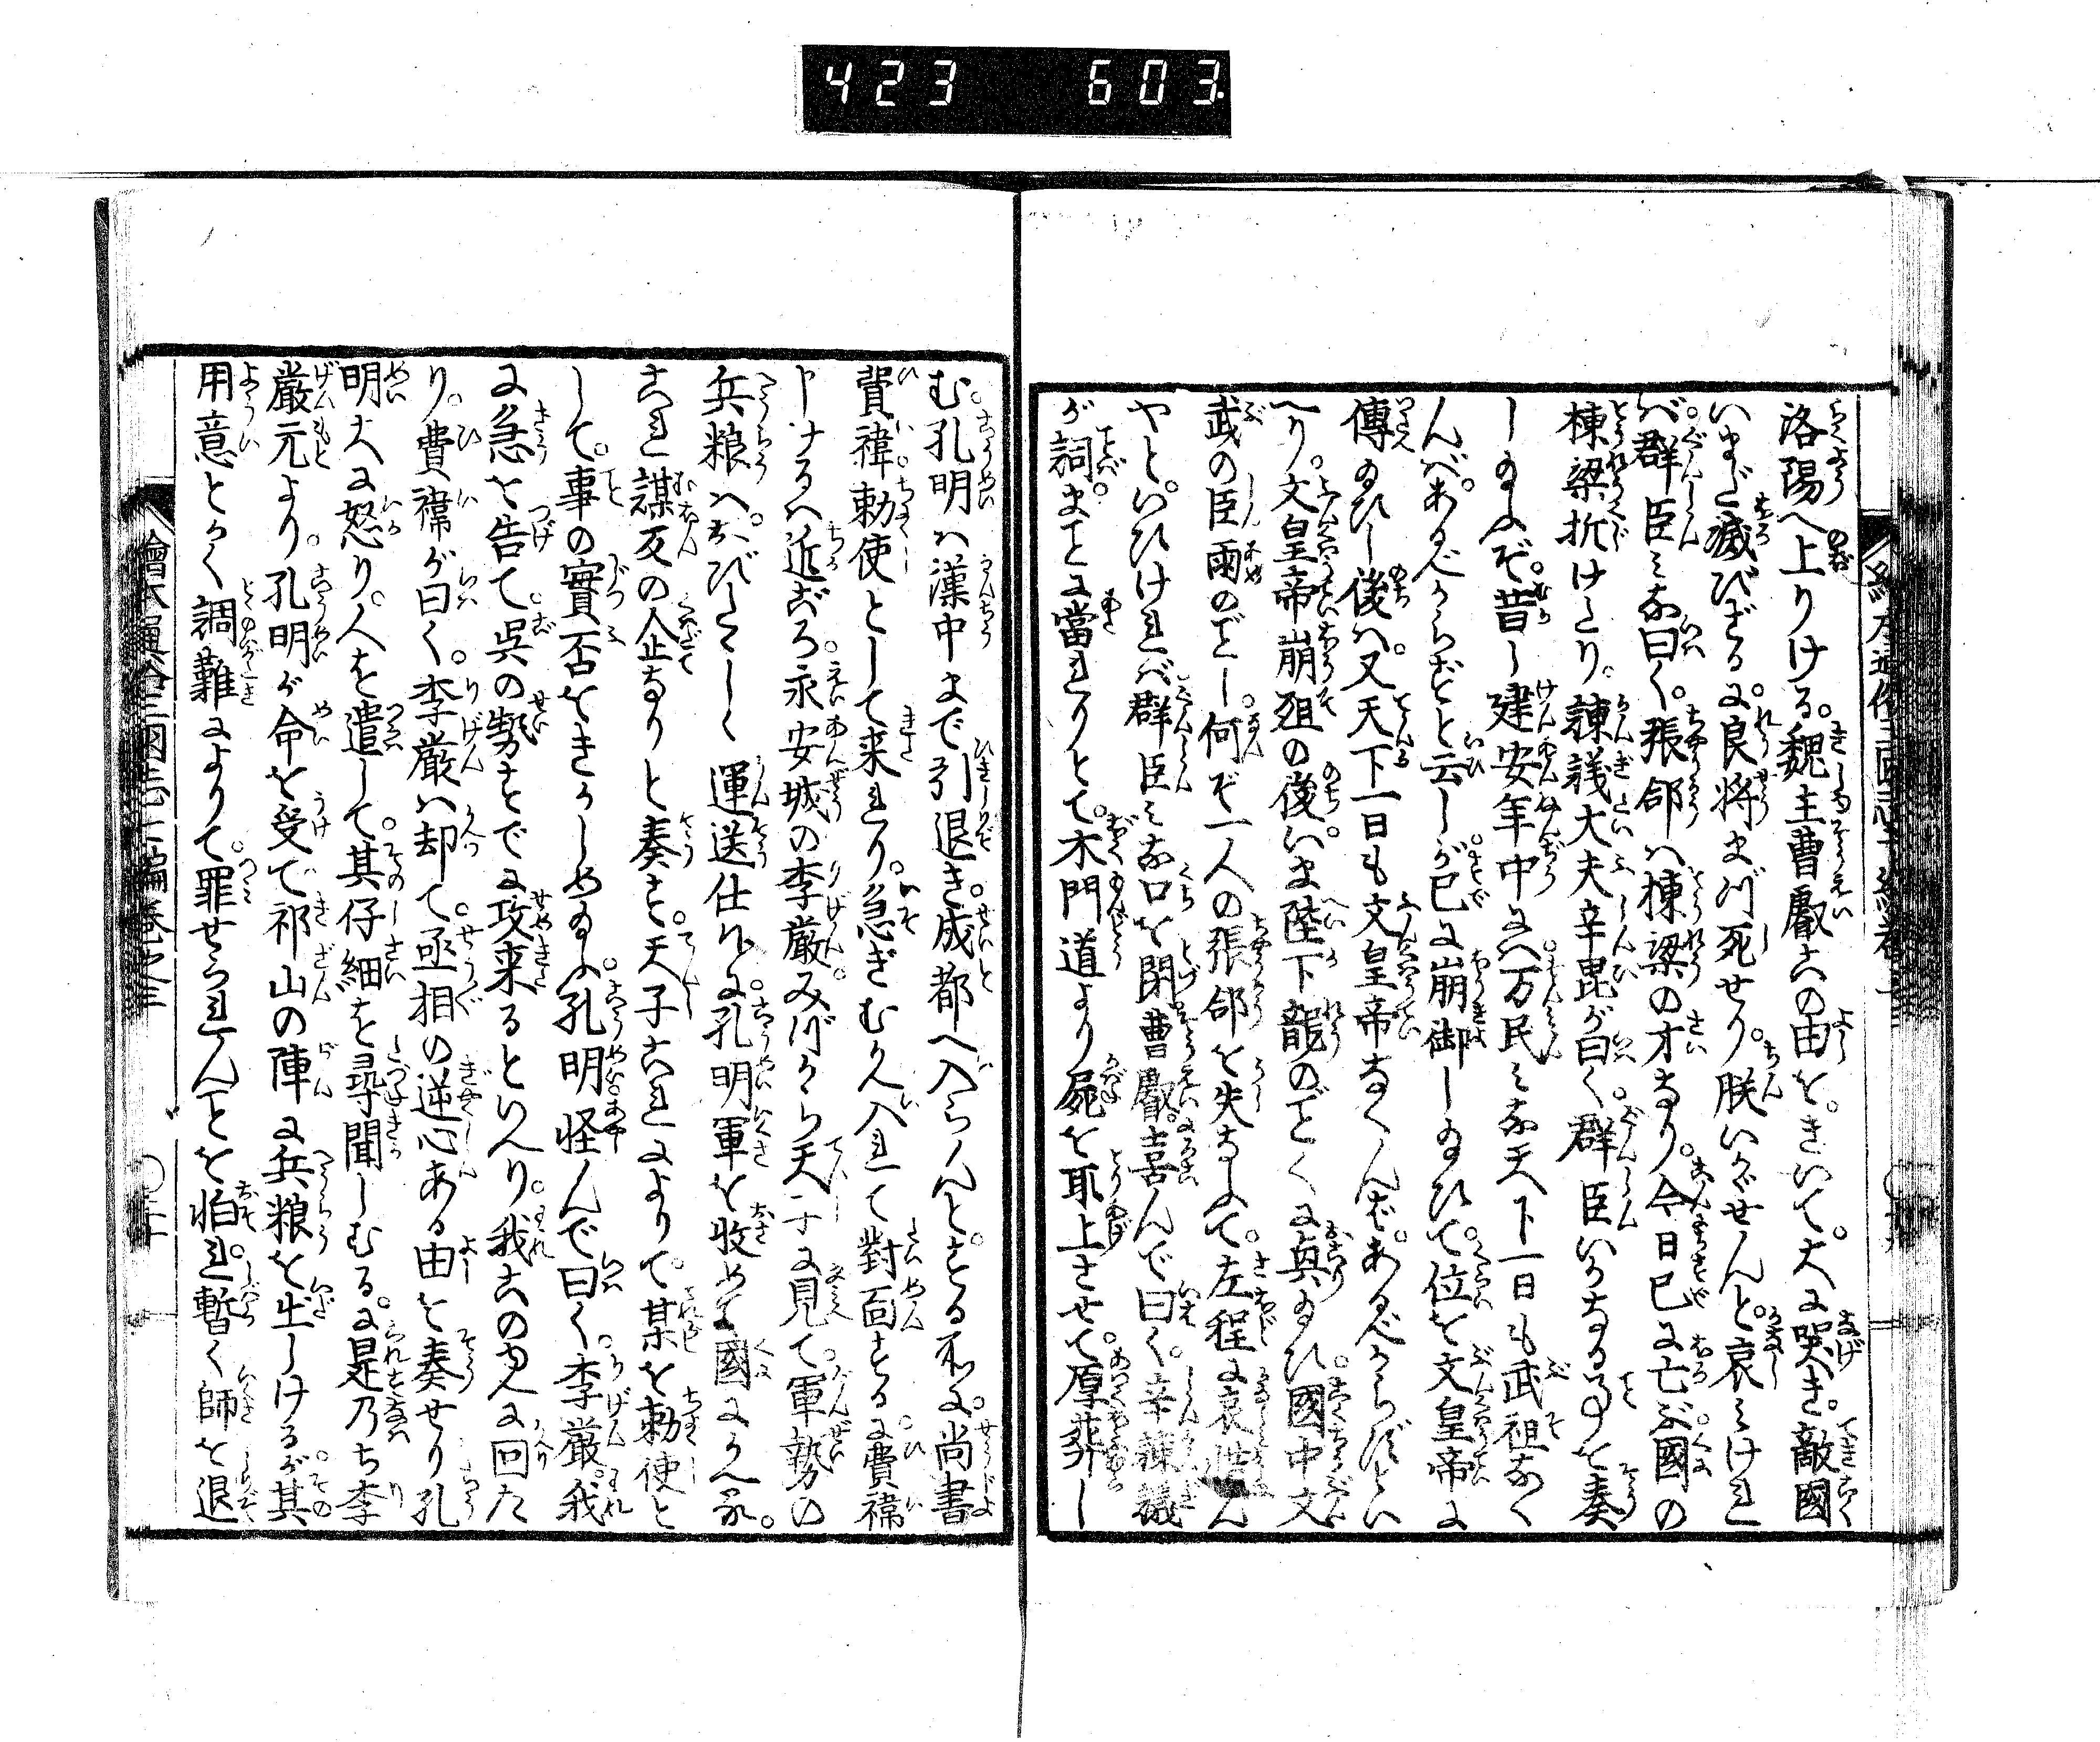 423 603.
洛陽へ上りける。魏主曹叡この由を。きいて。大に哭き。敵國
いまだ滅びざるに。良将まづ死せり。朕いかゞせんと。哀みけれ
ば。群臣みな曰く。張郃は棟梁の才なり。今日已に亡ぶ。國の
棟梁折けたり。諫議大夫辛毘が曰く。群臣いかなる事を奏
し給ふぞ。昔し建安年中には。万民みな天下一日も武祖なく
んば。あるべからずと云しが。已に崩御し給ひて。位を文皇帝に
傳給ひし後は。又天下一日も文皇帝なくんば。あるべからずとい
へり。文皇帝崩殂の後。いま陛下龍のごとくに興給ひ。國中文
武の臣雨のごとし。何ぞ一人の張郃を失なふて。左程に哀せん
やと。いひければ。群臣みな口を閉。曹叡喜んで曰く。辛諫議
が詞。まことに當れりとて。木門道より屍を取上させて。厚葬し
む。孔明は漢中まで引退き。成都へ入らんと。する所に。尚書
費禕。勅使として来れり。急ぎむかへ入れて對面するに。費禕
申けるは。近ごろ永安城の李厳。みづから天子に見て。軍勢の
兵粮は。おびたゝしく運送仕れ共。孔明軍を收めて國にかへる。
これ謀反の企なりと奏す。天子これによりて。某を勅使と
して。事の實否をきかしめ給ふ。孔明怪んで曰く。李厳。我
に急を告て。呉の勢すでに攻来るといへり。我このゆへに回た
り。費禕が曰く。李厳は却て。丞相の逆心ある由を奏せり。孔
明大に怒り。人を遣して。其仔細を尋聞しむるに。是乃ち李
厳元より。孔明が命を受て。祁山の陣に兵粮を出しけるが。其
用意とかく調難によりて。罪せられんことを怕れ。暫く師を退
繪本通俗三國志七編巻之三